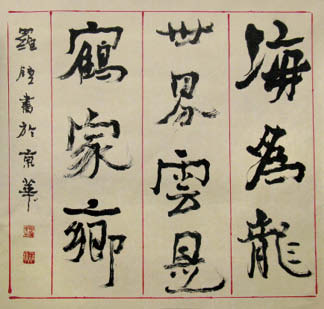 海為龍
世界雲是
鶴家鄉
羅經書於京華